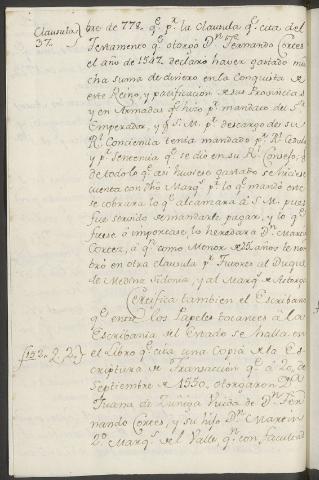 Clausula
37.
bre de 778. q.e p.r la Clausula q.e cita del
Testamento q.e otorgó D.n Fernando Cortes
el año de 1547. declaró haver gastado mu
cha suma de dinero en la Conquista de
este Reino, y pacificacion de sus Provincias
y en Armadas q.e hizo p.r mandado del S.r
Emperador, y q.e S. M. p.r descargo de su
R.l Conciencia tenia mandado p.r R.l Cedula
y p.r Sentencia q.e se dio en su R.l Consejo, q.e
de todo lo q.e asi huviese gastado se hiciese
cuenta con dho Marq.s p.r lo q.e mandó en
se cobrara lo q.e alcanzara á S. M. pues
fue servido de mandarle pagar, y lo q.e
fuese ó importase lo heredara D.n Martin
Cortez, á q.n como Menor de 25 años le nom
bró en otra clausula p.r Tutores al Duque
de Medina Sidonia, y al Marq.s de Astorga
Certifica tambien el Escribano
q.e entre los Papeles tocantes á la
Escribania del Estado se halla en
f 132. 22.
el Libro q.e cita una Copia de la Es
criptura de Transaccion q.e á 20, de
Septiembre de 1550. otorgaron D.ña
Juana de Zuñiga Viuda de D.n Fer
nando Cortes, y su hijo D.n Martin
2.o Marq.s del Valle, q.n con facultad